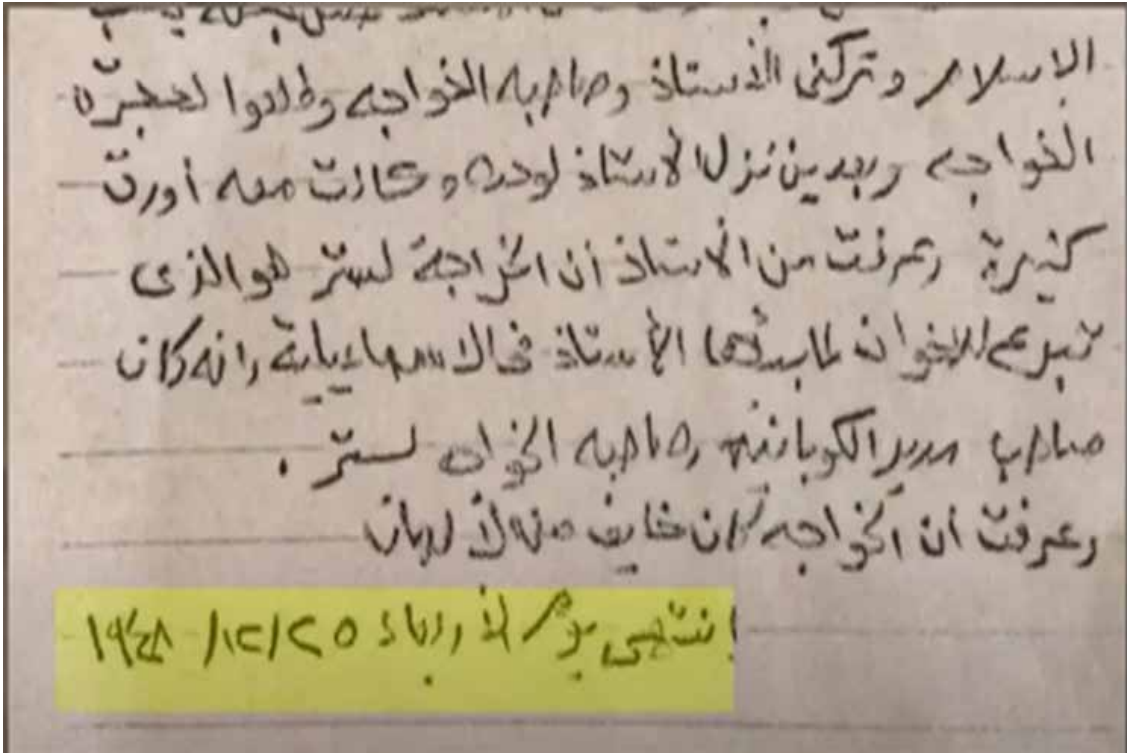 الاسلام وتركنى الأستاذ وصاحبه الخواجه وطلعوا لحجرة
الخواجه وبعدين نزل الأستاذ لوحده وكانت معه أورق
كثيرة وعرفت من الأستاذ أن الخواجة لستر هو الذى
تبرع للاخوان لما بدأها الأستاذ فى الاسماعيلية وانه كان
صاحب مدير الكوبانيه وصاحبه الخواجه لستر .
وعرفت ان الخواجه كان خايف من
انتهى يوم الأربعاء ٢٥ /١٢/ ١٩٤٨